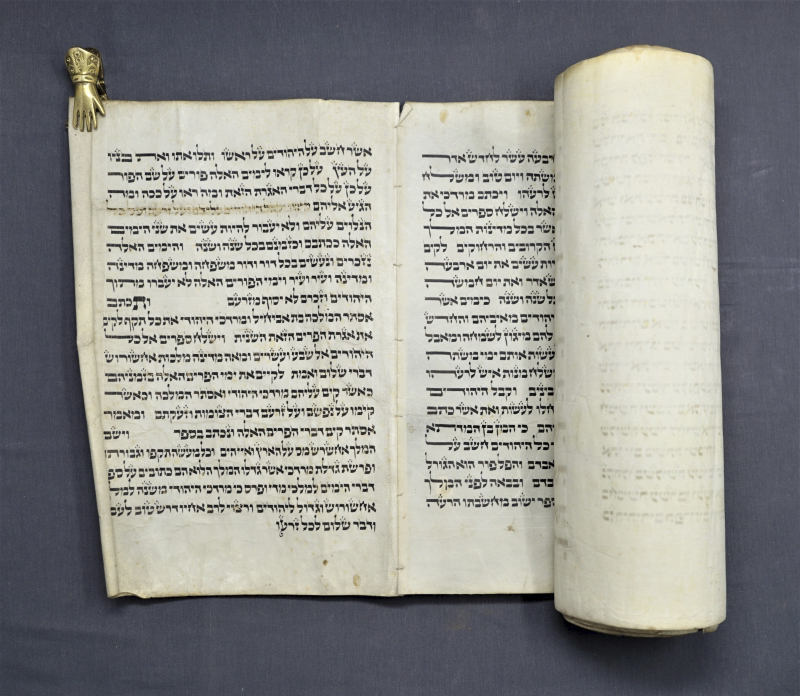 רבעה עשר לחדש אדר
משתה ויום טוב ומשלח
לרעהו ויכתב מרדכי את
האלה וישלח ספרים אל כל
אשר בכל מדינות המלך
הקרובים והרחוקים לקים
עשים את יום ארבעה
אדר ואת יום חמשה
שנה ושנה כימים אשר
היהודים מאיביהם והחדש
להם מיגון לשמחה ומאבל
לעשות אותם ימי משתה
מנות איש לרעהו
וקבל היהודים
החלו לעשות ואת אשר כתב
כי המן בן המדתא
כל היהודים חשב על
לאבדם והפל פור הוא הגורל
ובבאה לפני המלך
הספר ישוב מחשבתו הרעה
אשר חשב על היהודים על ראשו ותלו אתו ואת בניו
על העץ על כן קראו לימים האלה פורים על שם הפור
על כן על כל דברי האגרת הזאת ומה ראו על ככה ומה
הגיע אליהם קימו וקבלו היהודים עליהם ועל זרעם ועל כל
הנלוים עליהם ולא יעבור להיות עשים את שני הימים
האלה ככתבם וכזמנם בכל שנה ושנה והימים האלה
נזכרים ונעשים בכל דור ודור משפחה ומשפחה מדינה
ומדינה ועיר ועיר וימי הפורים האלה לא יעברו מתוך
היהודים וזכרם לא יסוף מזרעם ותכתב
אסתר המלכה בת אביחיל ומרדכי היהודי את כל תקף לקים
את אגרת הפרים הזאת השנית וישלח ספרים אל כל
היהודים אל שבע ועשרים ומאה מדינה מלכות אחשורוש
דברי שלום ואמת לקיים את ימי הפרים האלה בזמניהם
כאשר קים עליהם מרדכי היהודי ואסתר המלכה וכאשר
קימו על נפשם ועל זרעם דברי הצומות וזעקתם ומאמר
אסתר קים דברי הפרים האלה ונכתב בספר וישם
המלך אחשרש מס על הארץ ואיי הים וכל מעשה תקפו וגבורתו
ופרשת גדלת מרדכי אשר גדלו המלך הלוא הם כתובים על ספר
דברי הימים למלכי מדי ופרס כי מרדכי היהודי משנה למלך
אחשורוש וגדול ליהודים ורצוי לרב אחיו דרש טוב לעמו
ודבר שלום לכל זרעו